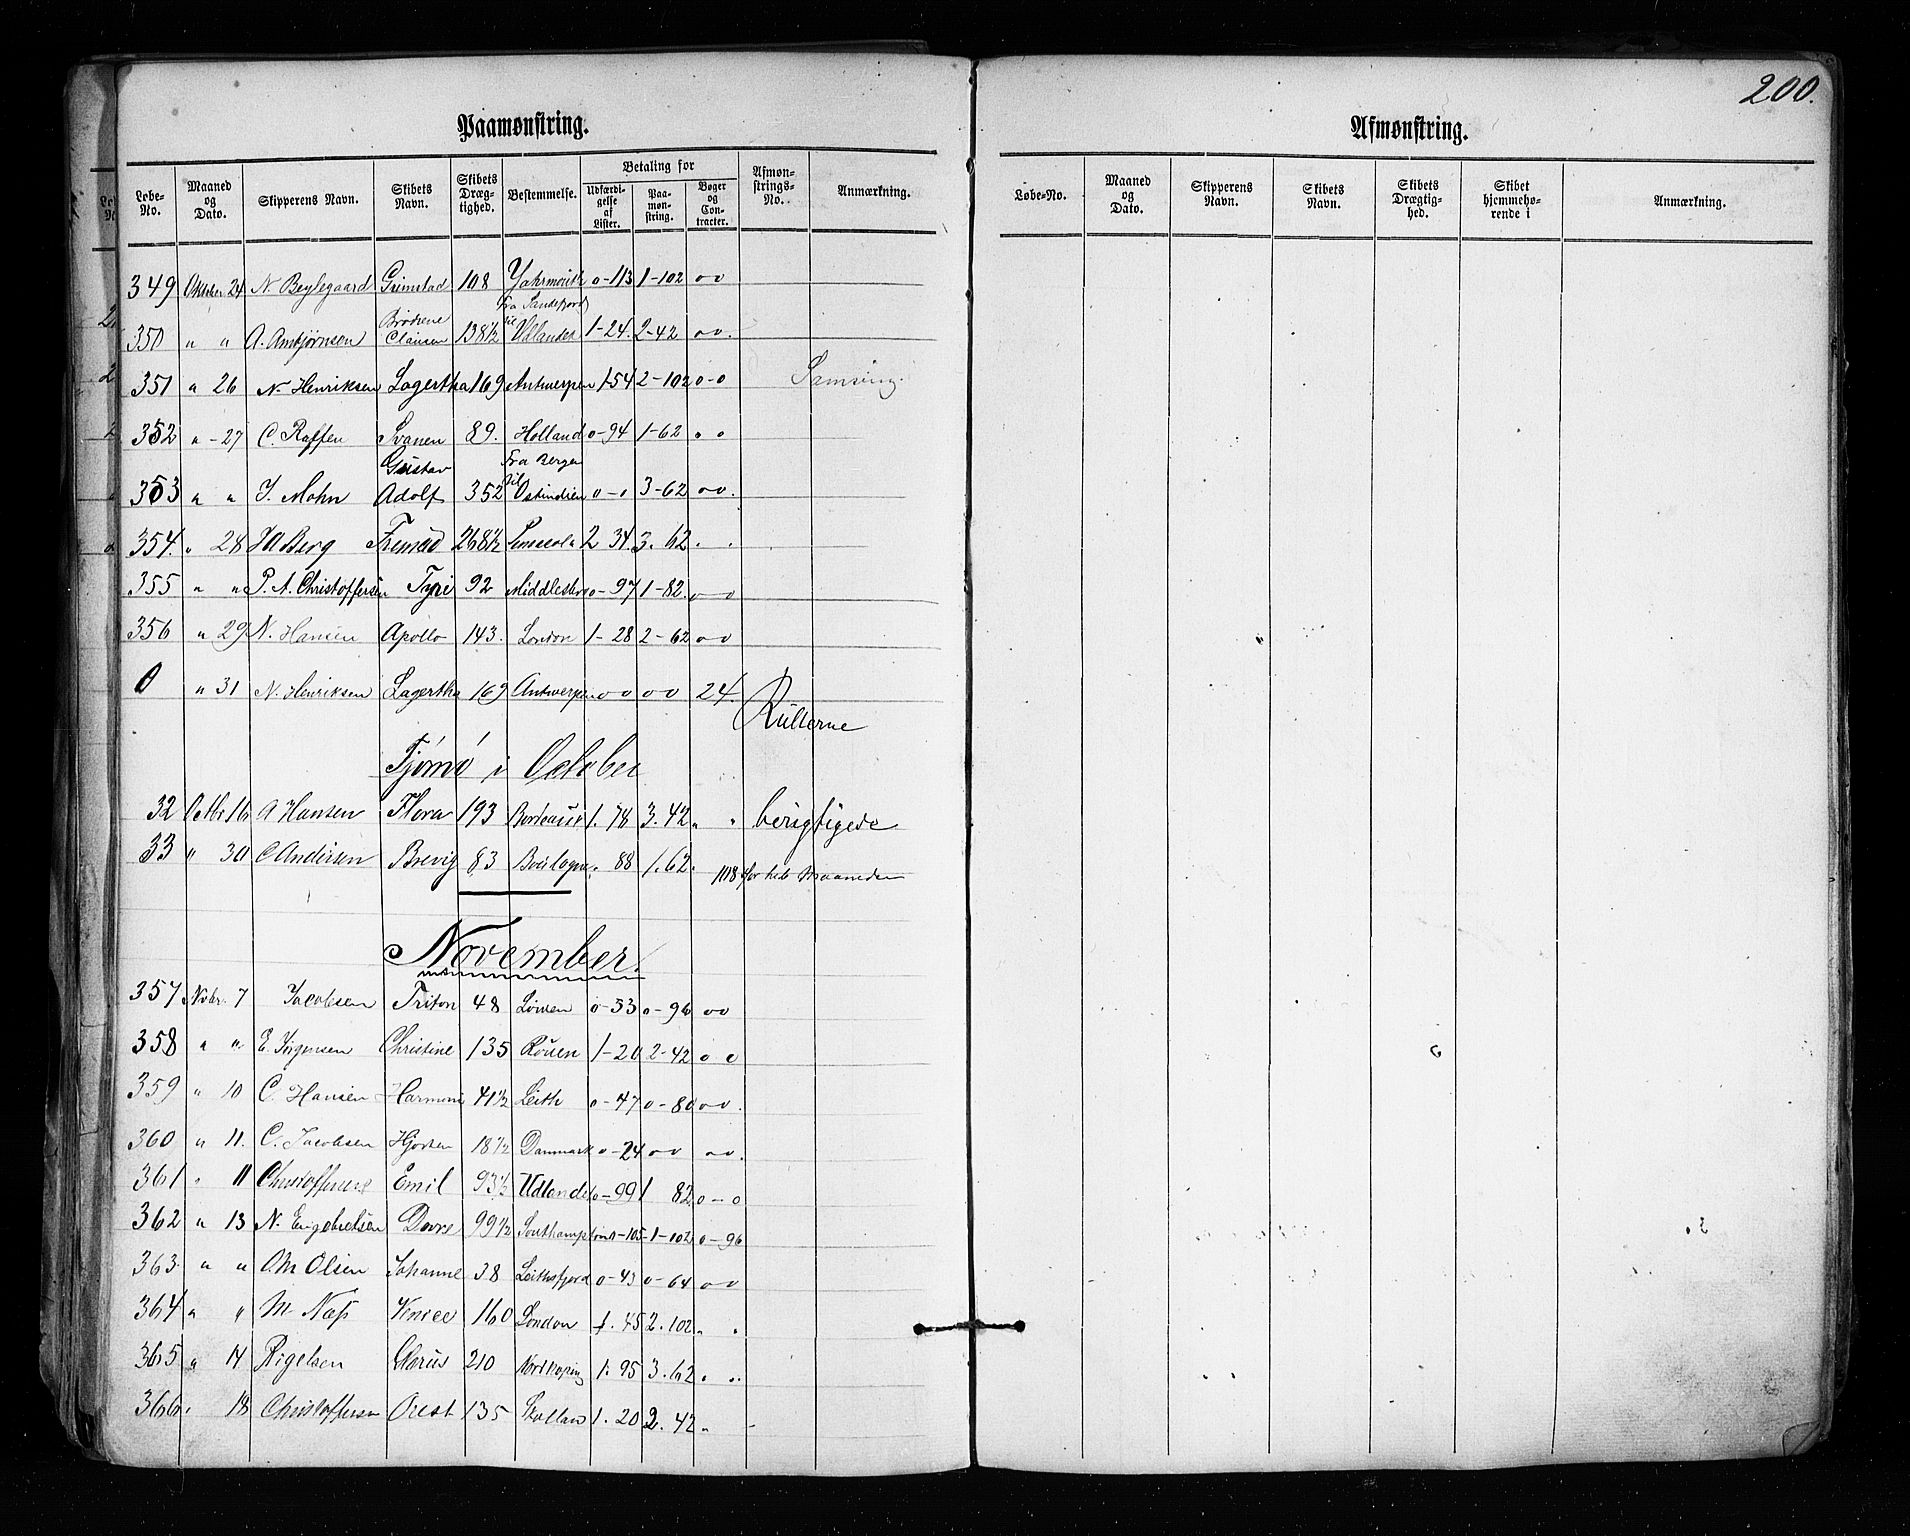 200.
Paamønstring.
Løbe-No. Maaned og Dato. Skipperens Navn. Skibets Navn. Skibets Dræg-tighed. Bestemmelse. Betaling for Udfærdi-gelse af Lister. Paa-møn-string. Bøger og Con-tracter. Afmøn-strings-No. Anmærkning.
349 October 24 N. Beylegaard Grimstad 108 Yahrmouth 0-113 1-102 0 0
350 " " A. Ambjørnsen Brødrene Clausen 138 1/2 Fra Sandefjord til Udlandet 1-24. 2-42 0 0.
351 " 26 N. Henriksen Lagertha 169 Antwerpen 1-54 2-102 0-0 Samsving.
352 " -27 C. Raffen Svanen 89. Holland 0-94 1-62 0 0
353 " " J. Mohn Gustav Adolf 352 Fra Bergen til Ostindien 0-0 3-62 0 0.
354. " 28 Berg Fremad 268 1/2 Pensecola 2 34. 3. 62 . .
355 " " P. A. Christoffersen Tyri 92 Middlesbro 0-97 1-82. 0 0
356 " 29 N. Hansen Apollo 143. London 1-28 2-62 0 0
0 " 31 N. Henriksen Lagertha 169 Antwerpen 0 0 0 0 24.
Rullerne
Tjømø i October
32 Octbr 16 A Hansen Flora 193 Bordeaux 1. 78 3. 42 " " berigtigede
33 " 30 C Andersen Brevig 83 Boulogne . 88 1. 62. 108 for hele Maaneden
November.
357 Novbr. 7 Jacobsen Triton 48 0-53 0-96 0 0
358 " " E. Jørgensen Christine 135 Rouen 1-20 2-42 0 0
359 " 10 C. Hansen Harmoni 41 1/2 Leith 0-47 0-80 0 0.
360 " 11. C. Jacobsen Hjorten 18 1/2 Danmark 0-24 0 0 0 0.
361 " 11 Christoffersen Emil 93 1/2 Udlandet 0-99 1 82 0-0
362 " 13 N. Engebretsen Dovre 99 1/2 Southampton 0-105 1-102 0-96
363 " " O. M Olsen Johanne 38 0-43 0-64 0 0
364 " " M Næss Venice 160 London 1. 45 2. 102 " "
365 " 14 Rigelsen 210 Nordkøping 1. 95 3. 62 " "
366 " 18 Christoffersen Orest 135 1. 20 2. 42 "
Afmønstring.
Løbe-No. Maaned og Dato. Skipperens Navn. Skibets Navn. Skibets Drægtig-hed. Skibet hjemmehø-rende i Anmærkning.